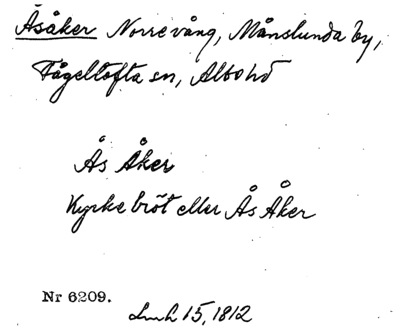 Åsåker Norrevång, Månslunda by,
Fågeltofta sn, Albo hd
Ås Åker
Kyrke bröt eller Ås Åker
Nr 6209.
Lmh 15, 1812